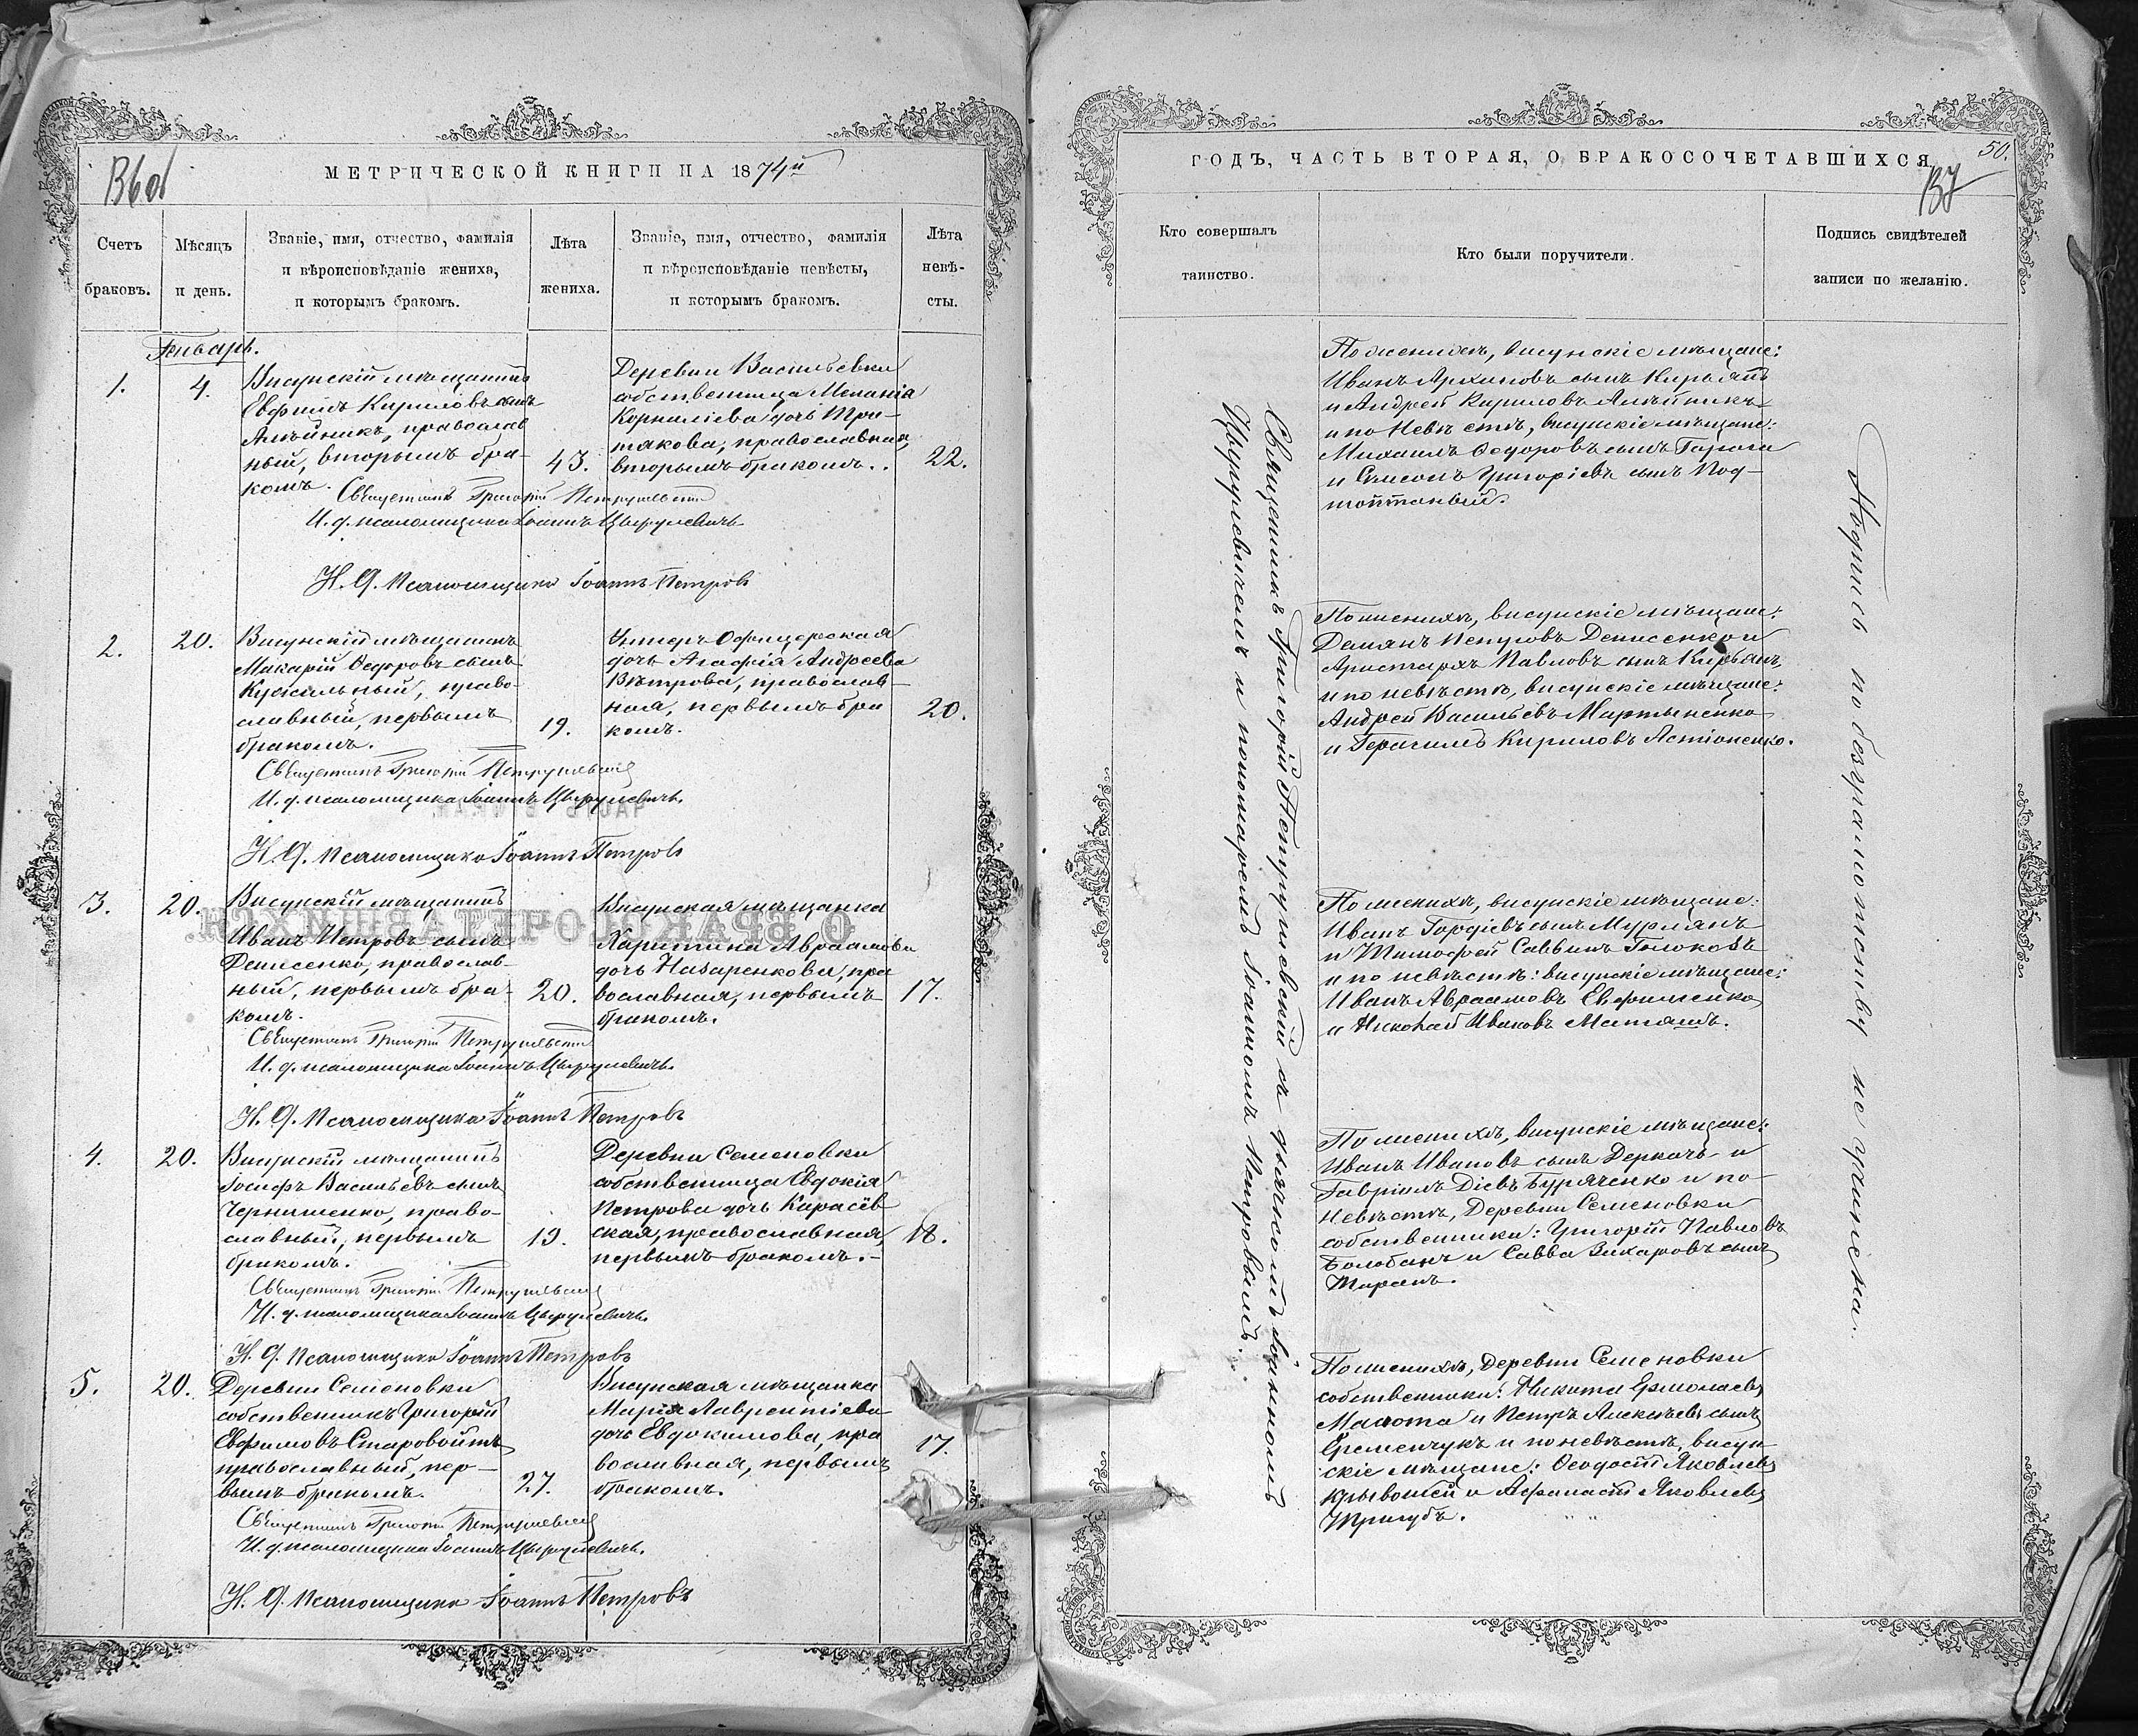 МЕТРИЧЕСКОЙ КНИГИ НА 1874й
Счетъ браковъ.
Мѣсяцъ и день.
Званіе, имя, отчество, фамилія и вѣроисповѣданіе жениха, и которымъ бракомъ.
Лѣта жениха.
Званіе, имя, отчество, фамилія и вѣроисповѣданіе невѣсты, и которымъ бракомъ.
Лѣта невѣ-
сты.
Январь.
1.
4.
Висунскій мѣщанинъ
Евфимъ Кириловъ сынъ
Алѣйникъ, православ
ный, вторымъ бра-
комъ.
43.
Деревни Васильевки
собственница Меланія
Корниліева дочь Тре-
тякова, православная,
вторымъ бракомъ..
22.
Священникъ Григорій Петрушевскій
И. д. псаломщика Іоаннъ Цырулевичъ
И. Д. Псаломщика Іоаннъ Петровъ
2.
20.
Висунскій мѣщанинъ
Макарій Ѳедоровъ сынъ
православный, первымъ
бракомъ.
19.
Унтеръ-Офицерская
дочь Агафія Андреева
Вѣтрова, православ-
ная, первымъ бра
комъ.
20.
Священникъ Григорій Петрушевскій
И. д. псаломщика Іоаннъ Цырулевичъ.
И. Д. Псаломщика Іоаннъ Петровъ
3.
20.
Висунскій мѣщанинъ
Иванъ Петровъ сынъ
Денисенко, православ-
ный, первымъ бра-
комъ.
20.
Висунская мѣщанка
Харитина Авраамова
дочь Назаренкова, пра
вославная, первымъ
бракомъ.
17.
Священникъ Григорій Петрушевскій
И. д. псаломщика Іоаннъ Цырулевичъ.
И. Д. Псаломщика Іоаннъ Петровъ
4.
20.
Висунскій мѣщанинъ
Іосифъ Васильевъ сынъ
Чернышенко, право-
славный, первымъ
бракомъ.
19.
Деревни Семеновки
собственница Евдокія
Петрова дочь Карасев
ская, православная,
первымъ бракомъ.-
18.
Священникъ Григорій Петрушевскій
И. д. псаломщика Іоаннъ Цырулевичъ.
И. Д. Псаломщика Іоаннъ Петровъ
5.
20.
Деревни Семеновки
собственникъ Григорій
Евфимовъ Старовойтъ
православный, пер-
вымъ бракомъ.
27.
Висунская мѣщанка
Марія Лаврентіева
дочь Евдокимова, пра
вославная, первымъ
бракомъ.
17.
Священникъ Григорій Петрушевскій
И. д. псаломщика Іоаннъ Цырулевичъ.
И. Д. Псаломщика Іоаннъ Петровъ
ГОДЪ, ЧАСТЬ ВТОРАЯ, О БРАКОСОЧЕТАВШИХСЯ
50.
Кто совершалъ таинство.
Кто были поручители.
Подпись свидѣтелей записи по желанію.
Священникъ Григорій Петрушевскій съ дьячкомъ Іоанномъ
Цырулевичемъ и пономаремъ Іоанномъ Петровымъ.
По женихѣ, висунскіе мѣщане:
Иванъ Архиповъ сынъ Кирьянъ
и Андрей Кириловъ Алѣйникъ
и по Невѣстѣ, висунскіе мѣщане:
Михаилъ Ѳедоровъ сынъ
и Григоріевъ сынъ Под-
топтаный.
По женихѣ, висунскіе мѣщане:
Демянъ Петровъ Денисенко и
Аристархъ Павловъ сынъ Кирьянъ,
и по невѣстѣ, висунскіе мѣщане:
Андрей Васильевъ Мартыненко
и Герасимъ Кириловъ
По женихѣ, висунскіе мѣщане:
Иванъ Гордіевъ сынъ
и Тимофей Саввинъ
и по невѣстѣ: висунскіе мѣщане:
Иванъ Авраамовъ Евфименко
и Николай Ивановъ Маташъ.
По женихѣ, висунскіе мѣщане:
Иванъ Ивановъ сынъ Деркачъ и
Гавріилъ Діевъ Буряченко и по
Невѣстѣ, Деревни Семеновки
собственники: Григорій Павловъ
Болобанъ и Савва Захаровъ сынъ
Таранъ.
По женихѣ, Деревни Семеновки
собственники: Никита Ермолаевъ
и Петръ Алексѣевъ сынъ
Еременчукъ и по невѣстѣ, висун-
скіе мѣщане: Ѳеодосій Яковлевъ
Крывошей и Афанасій Яковлевъ
Тригубъ.
Подпись по безграмотству не учинена.